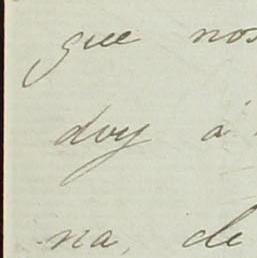 que nos
doy á
na, de